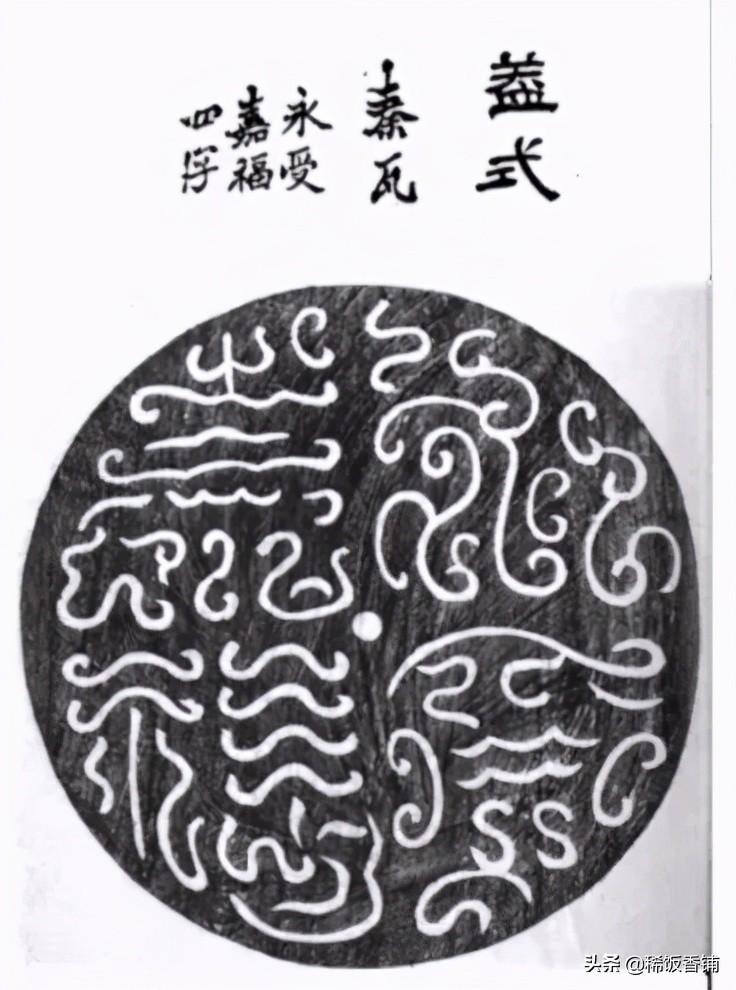 蓋式
秦瓦
永受
嘉福
四字
头条 @稀饭香铺